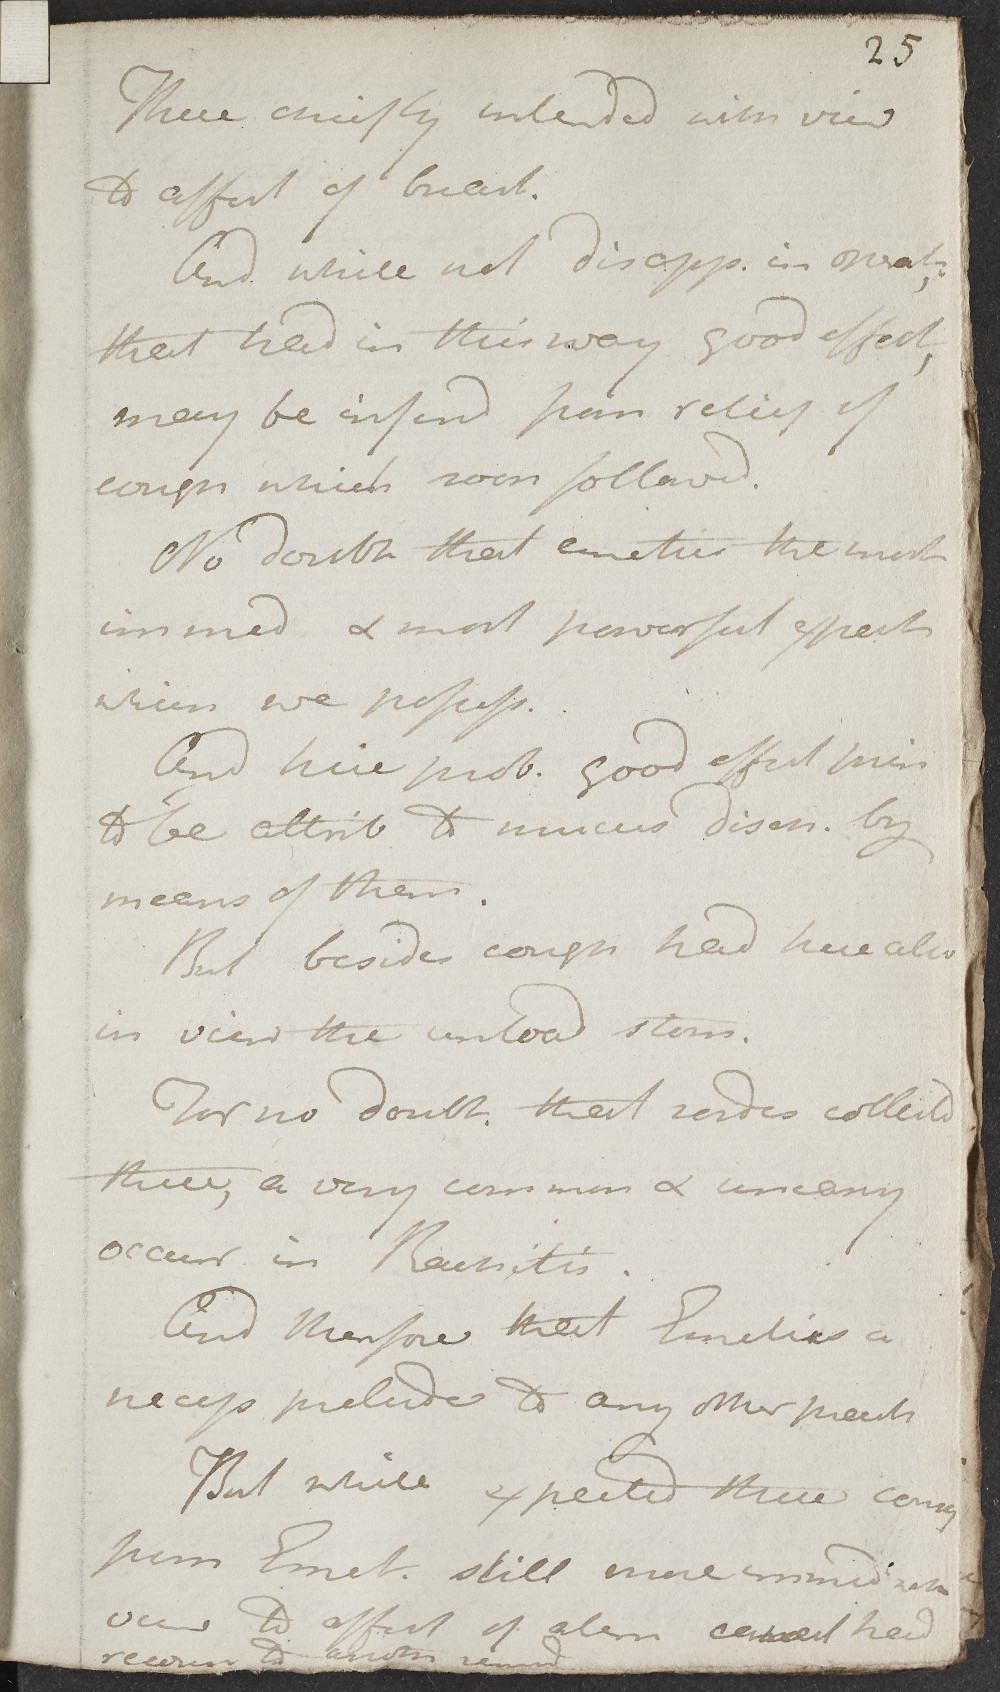 25
These chiefly intended with view
to affect of breast.
And while not disapp. in operat;
that had in this way good effect,
may be inferd from relief of
cough which soon followd.
No doubt that emetics the most
immed & most powerful expect
which we possess.
And here prob. good effect prin
to be attrib to mucus disch. by
means of them.
But besides cough had here also
in view the unload stom.
For no doubt. that sordes collectd
there, a very common &
occurr in Rachitis.
And therefore that Emetics a
necess prelude to any other pract
But while expected these conseq
from Emet. still more immed with
view to affect of alem canal had
recourse to another remed